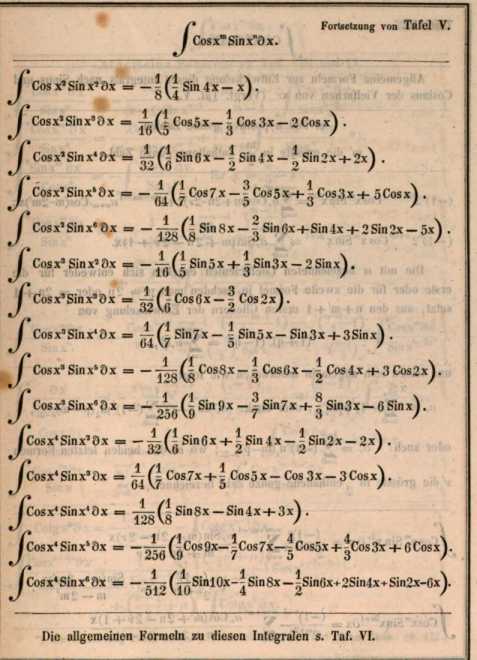 Fortsetzung von Tafel V.
∫ Cos xᵐ Sin xⁿ ∂x.
∫ Cos x² Sin x² ∂x = − 1/8 (1/4 Sin 4x − x) .
∫ Cos x² Sin x³ ∂x = 1/16 (1/5 Cos 5x − 1/3 Cos 3x − 2 Cos x) .
∫ Cos x² Sin x⁴ ∂x = 1/32 (1/6 Sin 6x − 1/2 Sin 4x − 1/2 Sin 2x + 2x) .
∫ Cos x² Sin x⁵ ∂x = − 1/64 (1/7 Cos 7x − 3/5 Cos 5x + 1/3 Cos 3x + 5 Cos x) .
∫ Cos x² Sin x⁶ ∂x = − 1/128 (1/8 Sin 8x − 2/3 Sin 6x + Sin 4x + 2 Sin 2x − 5x) .
∫ Cos x³ Sin x² ∂x = − 1/16 (1/5 Sin 5x + 1/3 Sin 3x − 2 Sin x) .
∫ Cos x³ Sin x³ ∂x = 1/32 (1/6 Cos 6x − 3/2 Cos 2x) .
∫ Cos x³ Sin x⁴ ∂x = 1/64 (1/7 Sin 7x − 1/5 Sin 5x − Sin 3x + 3 Sin x) .
∫ Cos x³ Sin x⁵ ∂x = − 1/128 (1/8 Cos 8x − 1/3 Cos 6x − 1/2 Cos 4x + 3 Cos 2x) .
∫ Cos x³ Sin x⁶ ∂x = − 1/256 (1/9 Sin 9x − 3/7 Sin 7x + 8/3 Sin 3x − 6 Sin x) .
∫ Cos x⁴ Sin x² ∂x = − 1/32 (1/6 Sin 6x + 1/2 Sin 4x − 1/2 Sin 2x − 2x) .
∫ Cos x⁴ Sin x³ ∂x = 1/64 (1/7 Cos 7x + 1/5 Cos 5x − Cos 3x − 3 Cos x) .
∫ Cos x⁴ Sin x⁴ ∂x = 1/128 (1/8 Sin 8x − Sin 4x + 3x) .
∫ Cos x⁴ Sin x⁵ ∂x = − 1/256 (1/9 Cos 9x − 1/7 Cos 7x − 4/5 Cos 5x + 4/3 Cos 3x + 6 Cos x) .
∫ Cos x⁴ Sin x⁶ ∂x = − 1/512 (1/10 Sin 10x − 1/4 Sin 8x − 1/2 Sin 6x + 2 Sin 4x + Sin 2x − 6x) .
Die allgemeinen Formeln zu diesen Integralen s. Taf. VI.